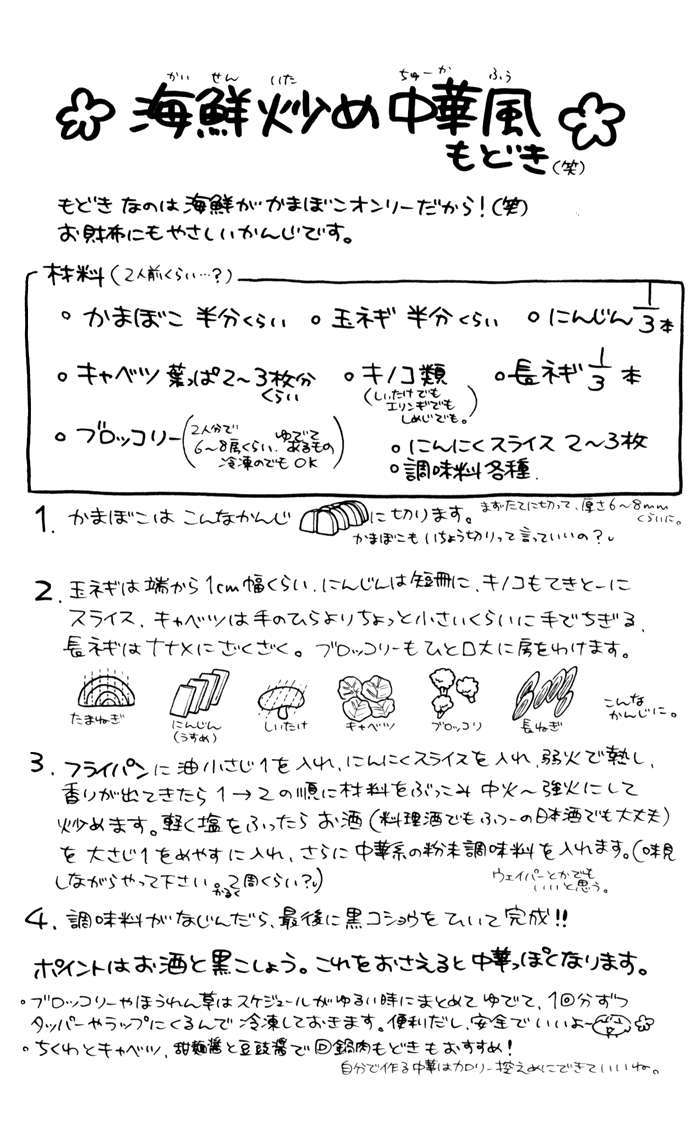 かい せん いた ちゅーか ふう
海鮮炒め中華風
もどき(笑)
もどきなのは海鮮がかまぼこオンリーだから!(笑)
お財布にもやさしいかんじです。
材料(2人前くらい…?)
○かまぼこ 半分くらい ○玉ネギ 半分くらい ○にんじん1/3本
○キャベツ 葉っぱ2～3枚分くらい ○キノコ類(しいたけでもエリンギでもしめじでも。) ○長ネギ1/3本
○ブロッコリー(2人分で6～8房くらい。ゆでてあるもの 冷凍のでもOK)
○にんにくスライス 2～3枚
○調味料各種.
1. かまぼこは こんなかんじ に切ります。まずたてに切って、厚さ6～8mmくらいに。
かまぼこもいちょう切りって言っていいの?
2. 玉ネギは端から1cm幅くらい、にんじんは短冊に、キノコもてきとーに
スライス、キャベツは手のひらよりちょっと小さいくらいに手でちぎる、
長ネギはナナメにざくざく。ブロッコリーもひと口大に房をわけます。
たまねぎ にんじん(うすめ) しいたけ キャベツ ブロッコリ 長ねぎ こんなかんじに。
3. フライパンに油小さじ1を入れ、にんにくスライスを入れ、弱火で熱し、
香りが出てきたら1→2の順に材料をぶっこみ中火～強火にして
炒めます。軽く塩をふったらお酒(料理酒でもふつーの日本酒でも大丈夫)
を大さじ1をめやすに入れ、さらに中華系の粉末調味料を入れます。(味見
しながらやって下さい。かるく2周くらい?)
ウェイパーとかでもいいと思う。
4. 調味料がなじんだら、最後に黒コショウをひいて完成!!
ポイントはお酒と黒こしょう。これをおさえると中華っぽくなります。
○ブロッコリーやほうれん草はスケジュールがゆるい時にまとめてゆでて、1回分ずつ
タッパーやラップにくるんで冷凍しておきます。便利だし、安全でいいよー
○ちくわとキャベツ、甜麺醤と豆豉醤で回鍋肉もどきもおすすめ!
自分で作る中華はカロリー控えめにできていいね。